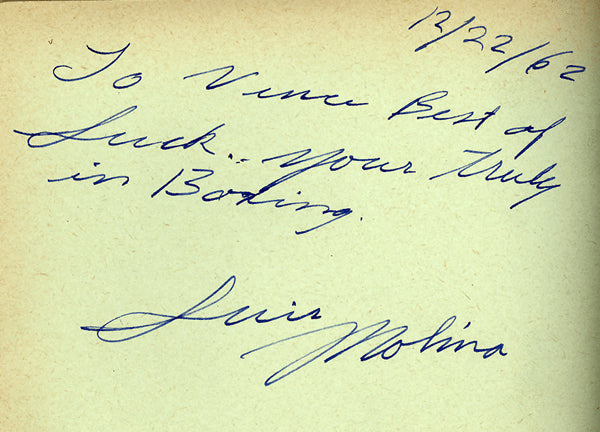 12/22/62
To Vince Best of
Luck.. Your Truly
in Boxing.
Luis Molina